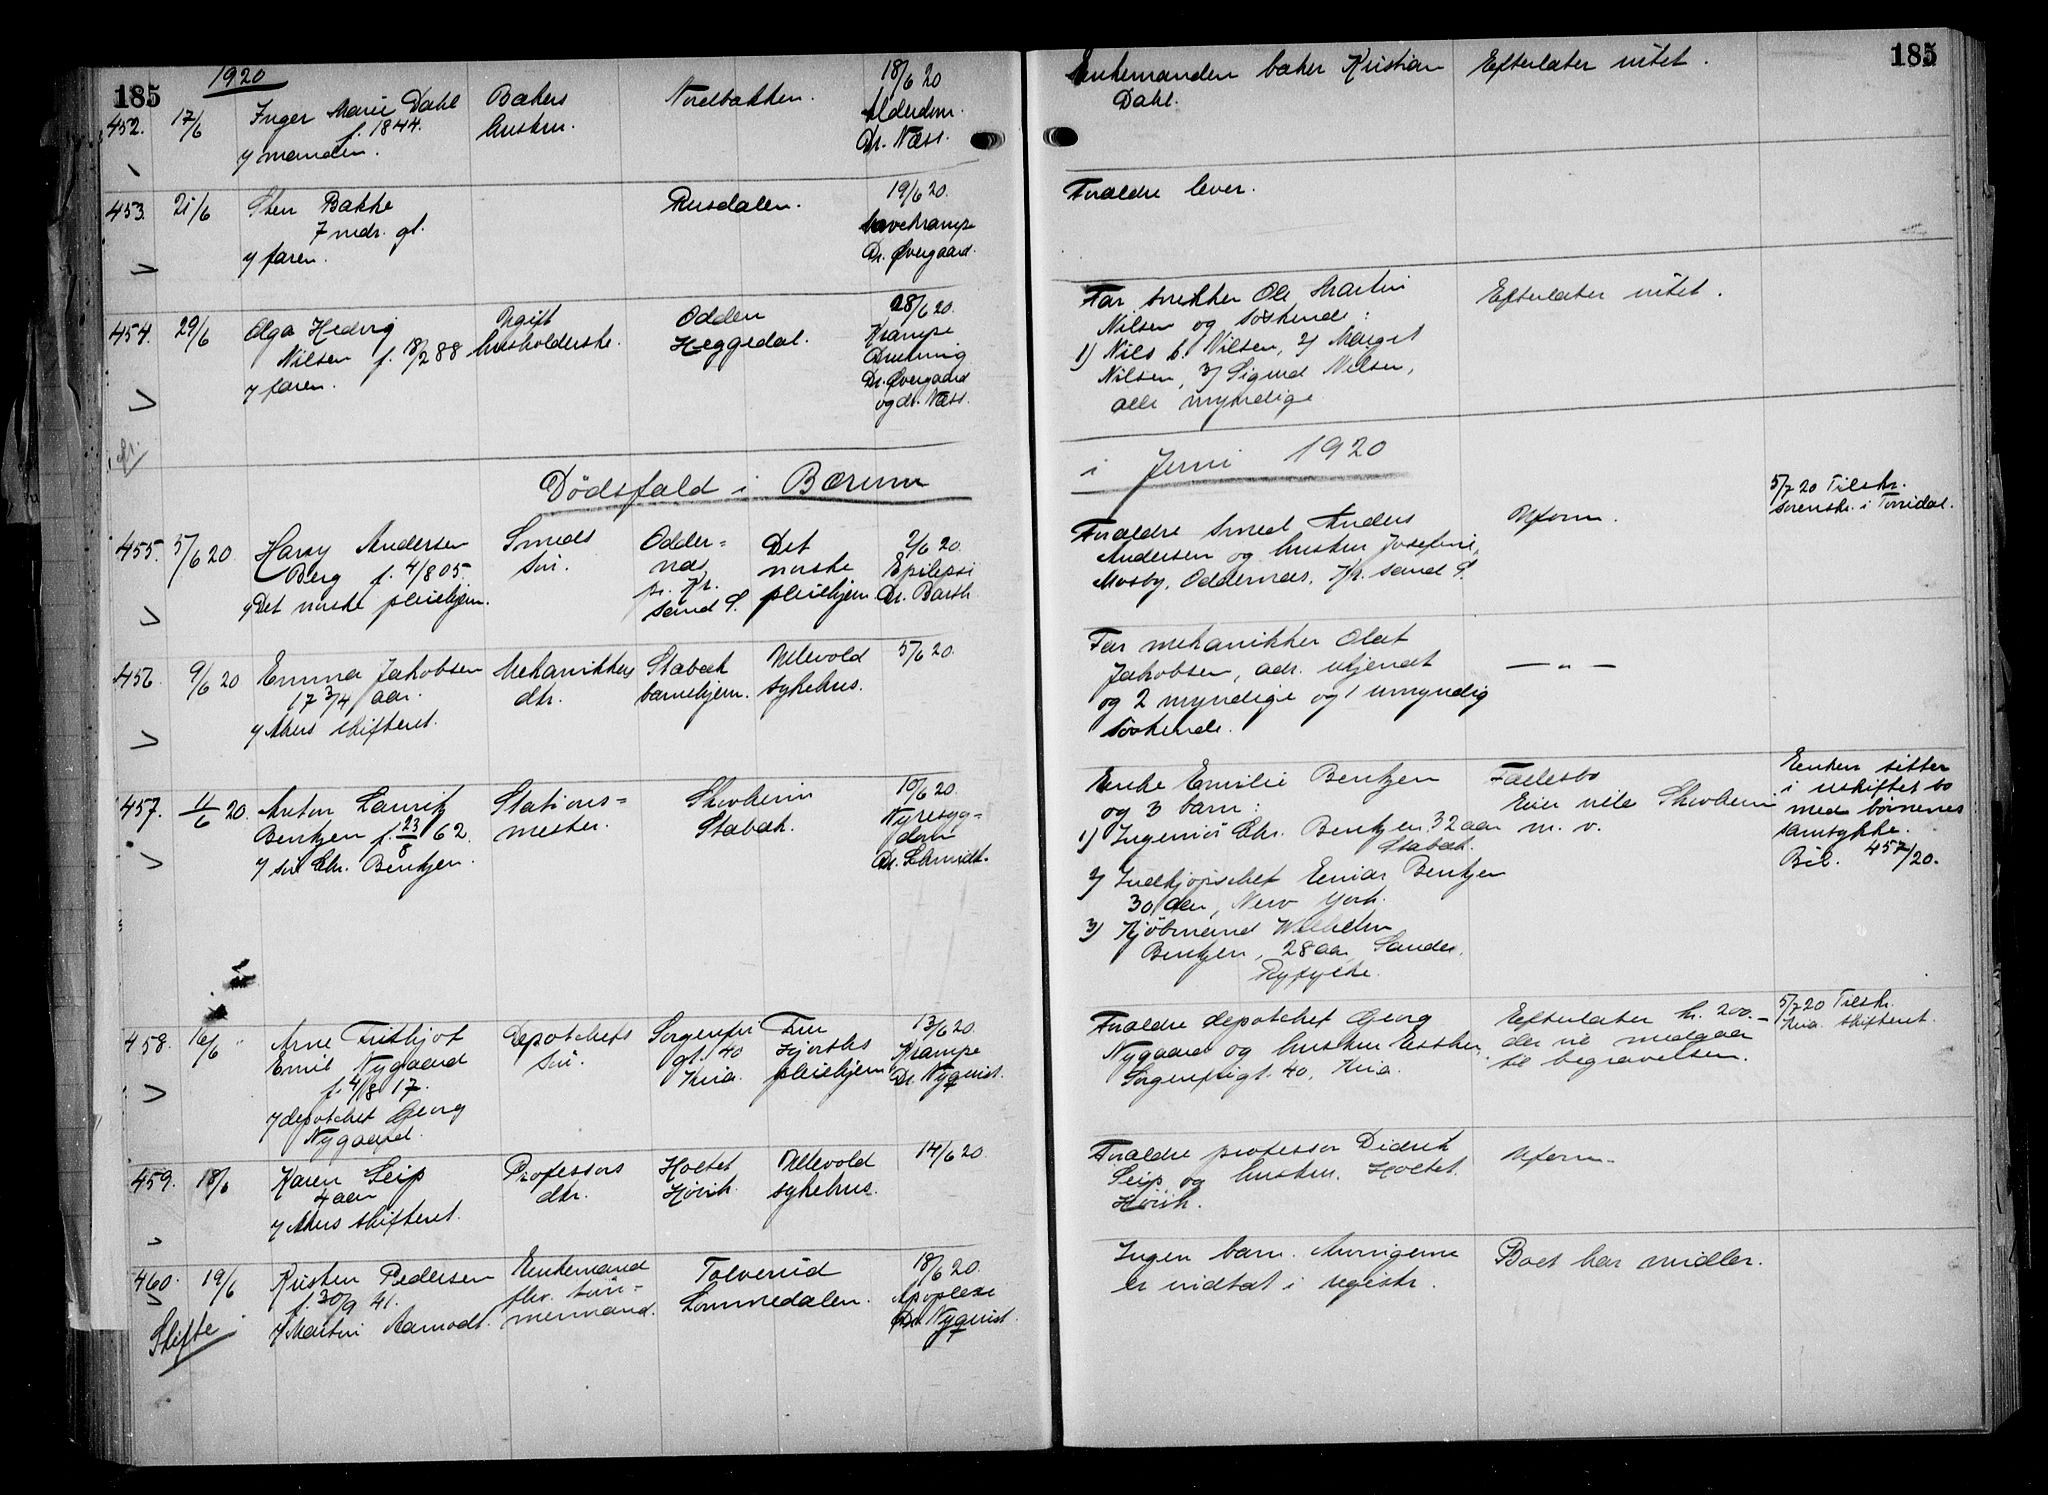 185
1920
452.
17/6
Inger Marie Dahl
f. 1844.
v/ manden.
Bakers
hustru.
Nordbakken.
18/6 20
Alderdom.
Dr. Næss.
Enkemanden baker Kristian
Dahl.
Efterlater intet.
185
453.
21/6
Sten Bakke
7 mdr. gl.
v/ faren.
Rusdalen.
19/6 20.
Krampe
Dr. Øvergaard.
Foræeldre lever.
454.
29/6
Olga Hedvig
Nilsen f. 18/2 88
v/ faren.
Ugift
husholderske.
Odden
Heggedal.
28/6 20.
Krampe
Drukning
Dr. Øvergaard
og dr. Næss.
Far snekker Ole Martin
Nilsen og søskende:
1) Nils Nilsen, 2) Margit
Nilsen, 3) Sigurd Nilsen,
alle myndige
Efterlater intet.
Dödsfald i Bærum
i Juni 1920
455.
5/6 20.
Harry Andersen
Berg f. 4/8 05.
v/ Det norske pleiehjem.
Smeds
sön.
Odder=
nes,
pr. Kr.
sand S.
Det
norske
pleiehjem
2/6 20.
Epilepsi
Dr. Barth
Forældre smed Anders
Andersen og hustru Josefine,
Mosby, Oddernes, Kr. sand S.
Uform.
5/7 20 Tilskr.
sorenskr. i Torridal.
456
9/6 20
Emma Jakobsen
17 3/4 aar.
v/ Akers skifteret.
Mekanikkers
dtr.
Stabæk
barnehjem.
Ullevold
sykehus.
5/6 20.
Far mekanikker Olaf
Jakobsen, adr. ukjendt
og 2 myndige og 1 umyndig
söskende.
— „ —
457.
11/6 20.
Anton Lauritz
Bentzen f. 23/8 62.
v/ sön Chr. Bentzen.
Stations=
mester.
Skovheim
Stabæk.
10/6 20.
Nyresyg=
dom
Dr. Schmidt.
Enke Emilie Bentzen
og 3 barn:
1) Ingeniör Chr. Bentzen 32 aar
Stabæk.
2) Indkjöpschef Einar Bentzen
30 aar, New York.
3) Kjöbmand Wilhelm
Bentzen, 28 aar, Sande,
Ryfylke.
Fællesbo
Eier villa Skovheim
m. v.
Enken sitter
i uskiftet bo
med börnenes
samtykke.
Bil. 457/20.
458.
16/6 „
Arne Frithjof
Emil Nygaard
f. 4/8 17.
v/ depotchef Georg
Nygaard.
Depotchefs
sön.
Sorgenfri
gt. 40
Kria.
Fru
Hjorths
pleiehjem
13/6 20.
Krampe
Dr. Nyquist.
Forældre depotchef Georg
Nygaard og hustru Esther,
Sorgenfrigt. 40, Kria.
Efterlater kr. 200.–
der vil medgaa
til begravelsen.
5/7 20 Tilskr.
Kria. skifteret.
459.
18/6
Karen Seip
4 aar
v/ Akers skifteret.
Professors
dtr.
Holtet
Hövik.
Ullevold
sykehus.
14/6 20.
Forældre professor Didrik
Seip og hustru. Holtet.
Hövik.
Uform.
460.
19/6
Kristen Pedersen
f. 30/9 41.
v/ Martin Aamodt.
Enkemand
fhv. töm=
mermand.
Tolverud
Lommedalen.
18/6 20.
Apoplexi
Dr. Nyquist.
Ingen barn. Arvingerne
er indtat i registr.
Boet har midler.
Skifte